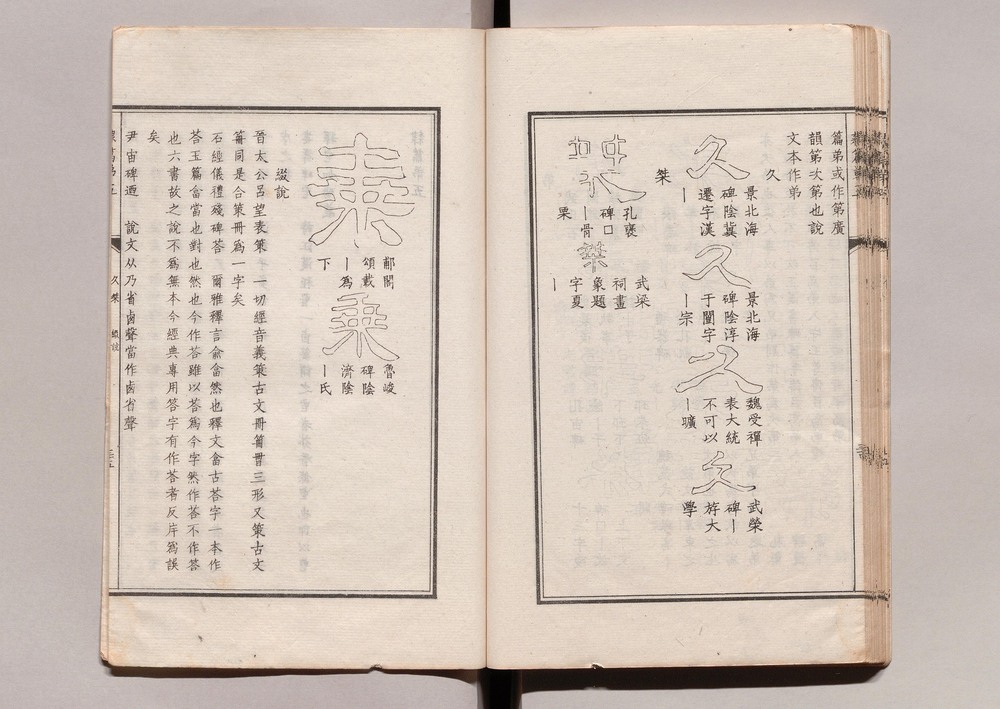 篇弟或作第廣
韻第次第也說
文本作弟
久
久
景北海
碑陰冀
遷字漢
｜
久
景北海
碑陰淳
于闓字
｜宗
久
魏受禪
表大統
不可以
｜曠
久
武榮
碑｜
斿大
學
桀
孔褒
碑口
｜骨
栗
桀
武梁
祠畫
象題
字夏
｜
乗
郙閣
頌載
｜爲
下
乗
魯峻
碑陰
濟陰
｜氏
綴說
晉太公呂望表䇿　一切經音義策古文冊篇
䈂同是合策冊爲一字矣
石經儀禮殘碑荅　爾雅釋言俞畣然也釋文畣古荅字一本作
荅玉篇畣當也對也然也今作荅雖以荅爲今字然作荅不作答
也六書故之說不爲無本今經典專用答字有作荅者反斥爲誤
矣
尹宙碑迺　說文从乃省卥聲當作卥省聲
久桀
綴說